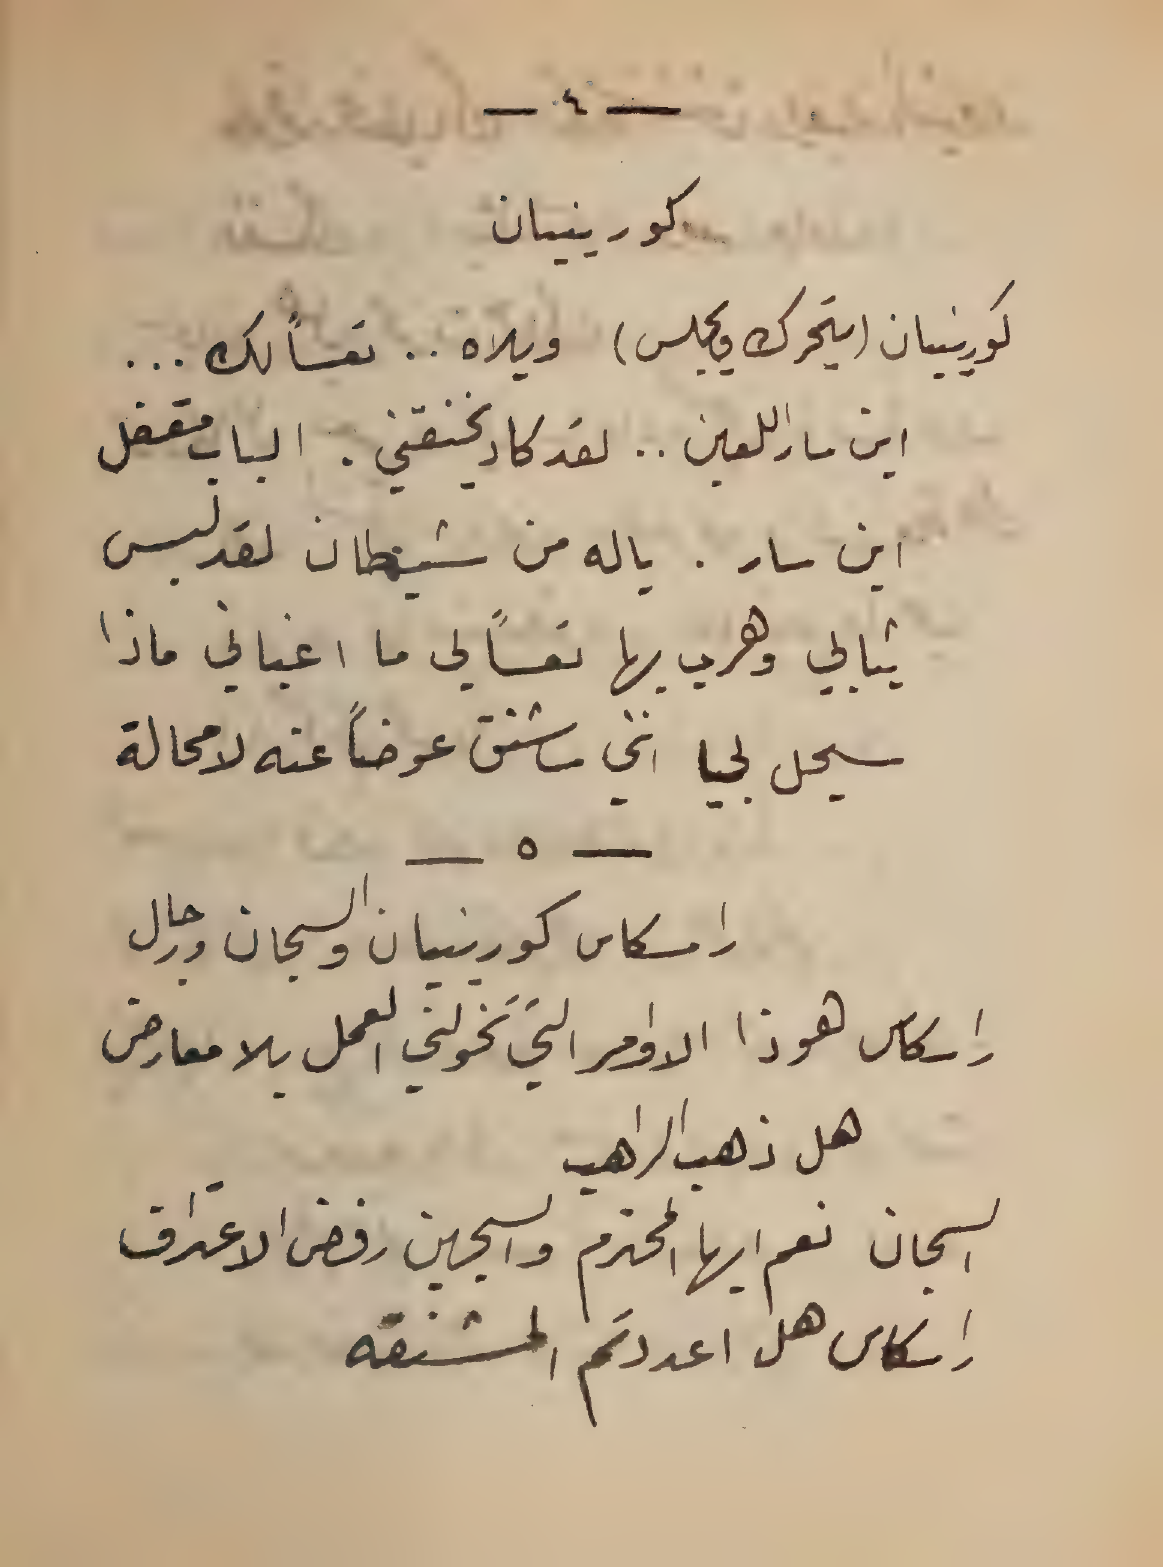 — ٤ —
كورينيان
كورينيان (يتحرك ويجلس) ويلاه .. تعساً لك ...
اين سار اللعين .. لقد كاد يخنقني . الباب مقفل
اين سار . ياله من شيطان لقد لبس
ثيابي وهرب بها تعساً لي ما اغباني ماذا
سيحل بي انني ساشنق عوضاً عنه لا محالة
— ٥ —
راسكاس كورينيان والسجان ورجال
راسكاس هوذا الاوامر التي تخولني العمل بلا معارض
هل ذهب الراهب
السجان نعم ايها المحترم والسجين رفض الاعتراف
راسكاس هل اعددتم المشنقه